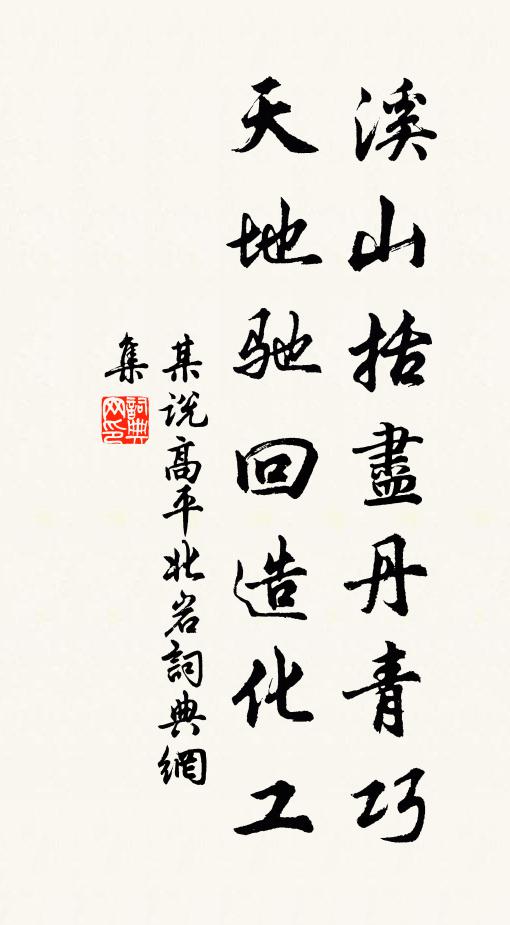 溪山括盡丹青巧
天地驰回造化工
某说高平北岩詞典網
集
詞典
网印